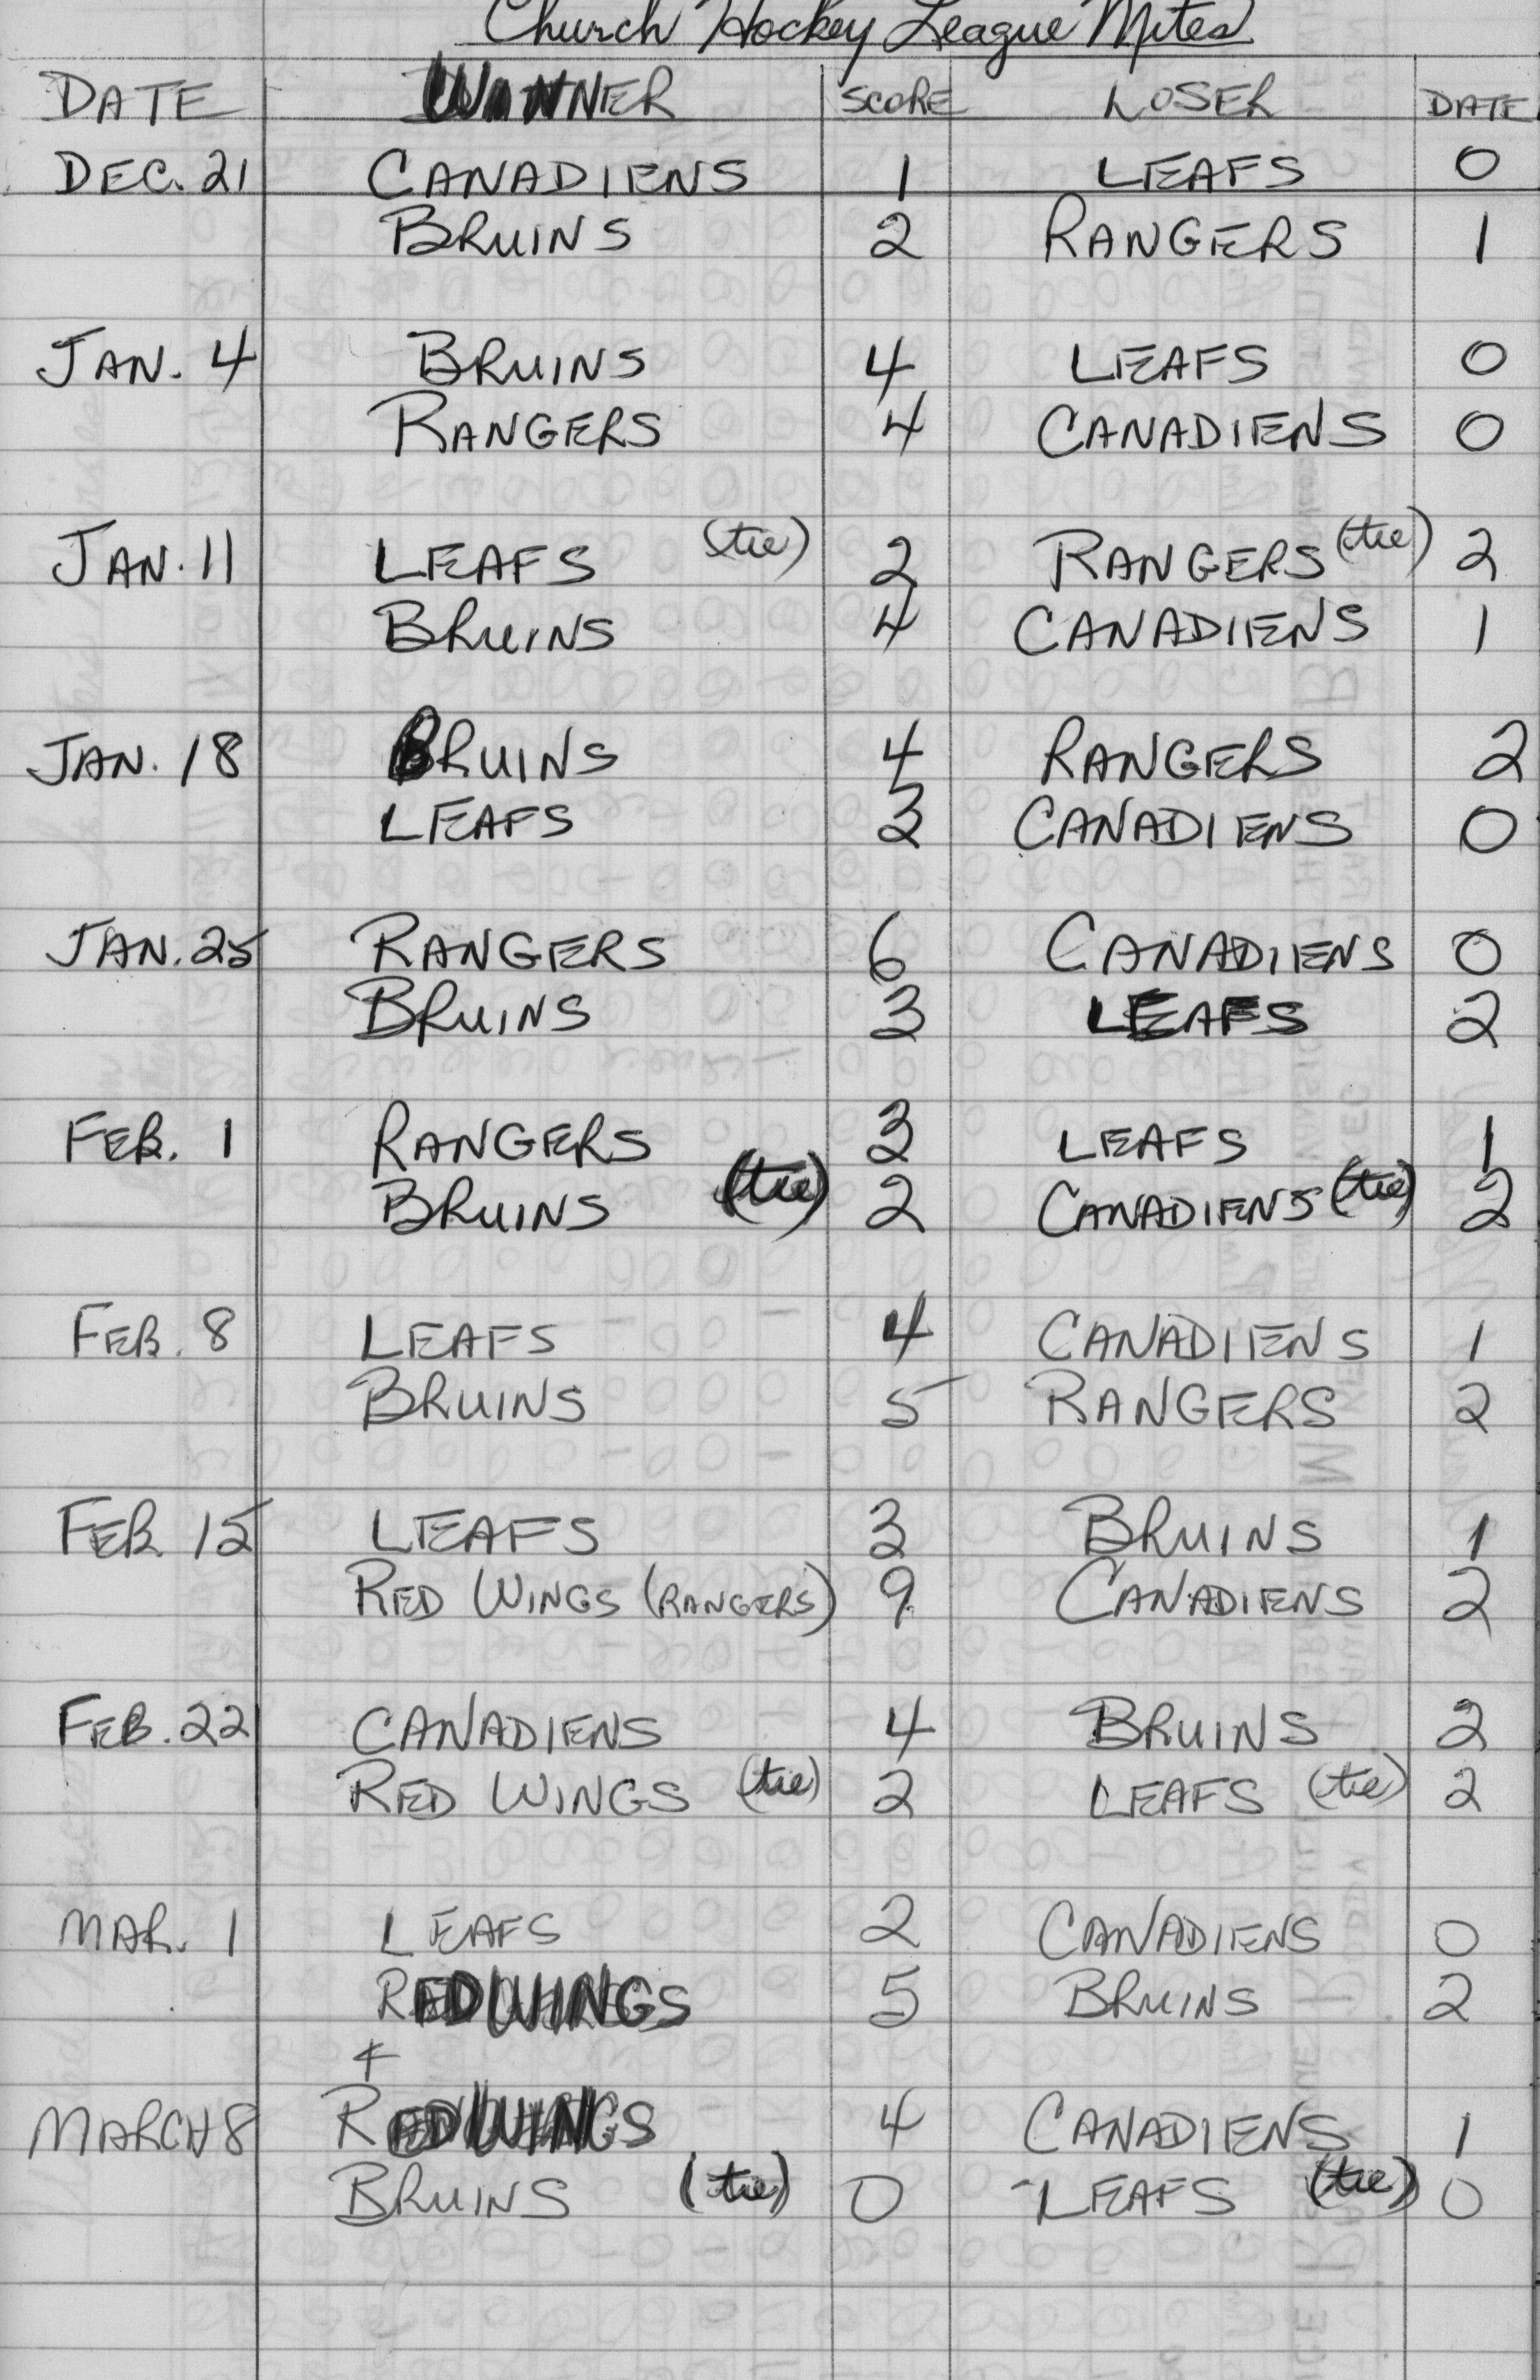 Church Hockey League Mites
DATE WINNER SCORE LOSER DATE
DEC. 21 CANADIENS 1 LEAFS 0
BRUINS 2 RANGERS 1
JAN. 4 BRUINS 4 LEAFS 0
RANGERS 4 CANADIENS 0
JAN. 11 LEAFS (tie) 2 RANGERS (tie) 2
BRUINS 4 CANADIENS 1
JAN. 18 BRUINS 4 RANGERS 2
LEAFS 3 CANADIENS 0
JAN. 25 RANGERS 6 CANADIENS 0
BRUINS 3 LEAFS 2
FEB. 1 RANGERS 3 LEAFS 1
BRUINS (tie) 2 CANADIENS (tie) 2
FEB. 8 LEAFS 4 CANADIENS 1
BRUINS 5 RANGERS 2
FEB. 15 LEAFS 3 BRUINS 1
RED WINGS (RANGERS) 9 CANADIENS 2
FEB. 22 CANADIENS 4 BRUINS 2
RED WINGS (tie) 2 LEAFS (tie) 2
MAR. 1 LEAFS 2 CANADIENS 0
RED WINGS 5 BRUINS 2
MARCH 8 RED WINGS 4 CANADIENS 1
BRUINS (tie) 0 LEAFS (tie) 0